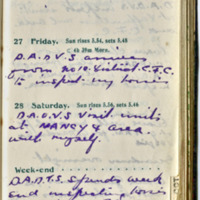 27 Friday. Sun rises 5.54, sets 5.48
4h 38m Morn.
D.A.D.V.S arrives
from
to inspect my horses
28 Saturday. Sun rises 5.56, sets 5.46
D.A.D.V.S visit units
at MANCY & area
with myself.
Week-end
D.A.D.V.S. spends week
end inspecting